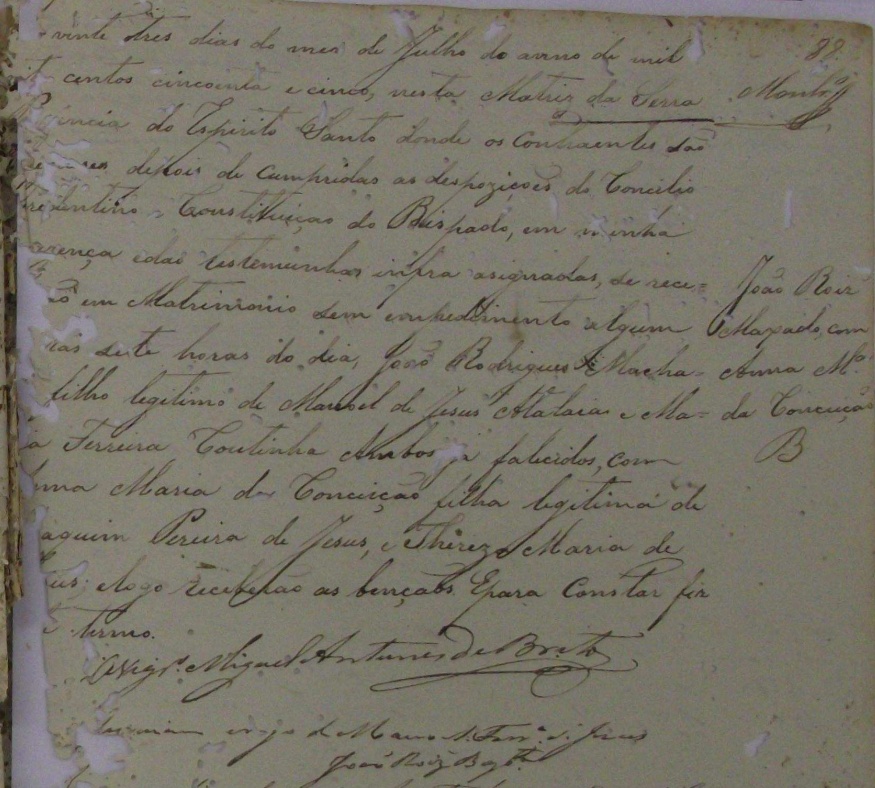 vinte tres dias do mes de Julho do anno de mil
centos cincoenta e cinco, nesta Matriz da Serra
incia do Espirito Santo donde os Contraentes são
depois de cumpridas as despoziçoes do Concilio
redentino Constituiçao do Bispado, em minha
zença e das testemunhas infra asignadas, se rece=
ão em Matrimonio sem empedimento algum
ras sete horas do dia, João Rodrigues Macha=
filho legitimo de Manoel de Jesus Atalaia e Ma=
a Ferreira Coutinha Ambos já falecidos, com
nna Maria da Conceição filha legitima de
aquim Pereira de Jesus, e Thereza Maria de
us; e logo receberão as bençaõs Epara Constar fiz
e termo.
O Vigrº. Miguel Antunes de Brito
João Roiz
88.
João Roiz
Maxado, com
Anna Mª.
da Conceição
B